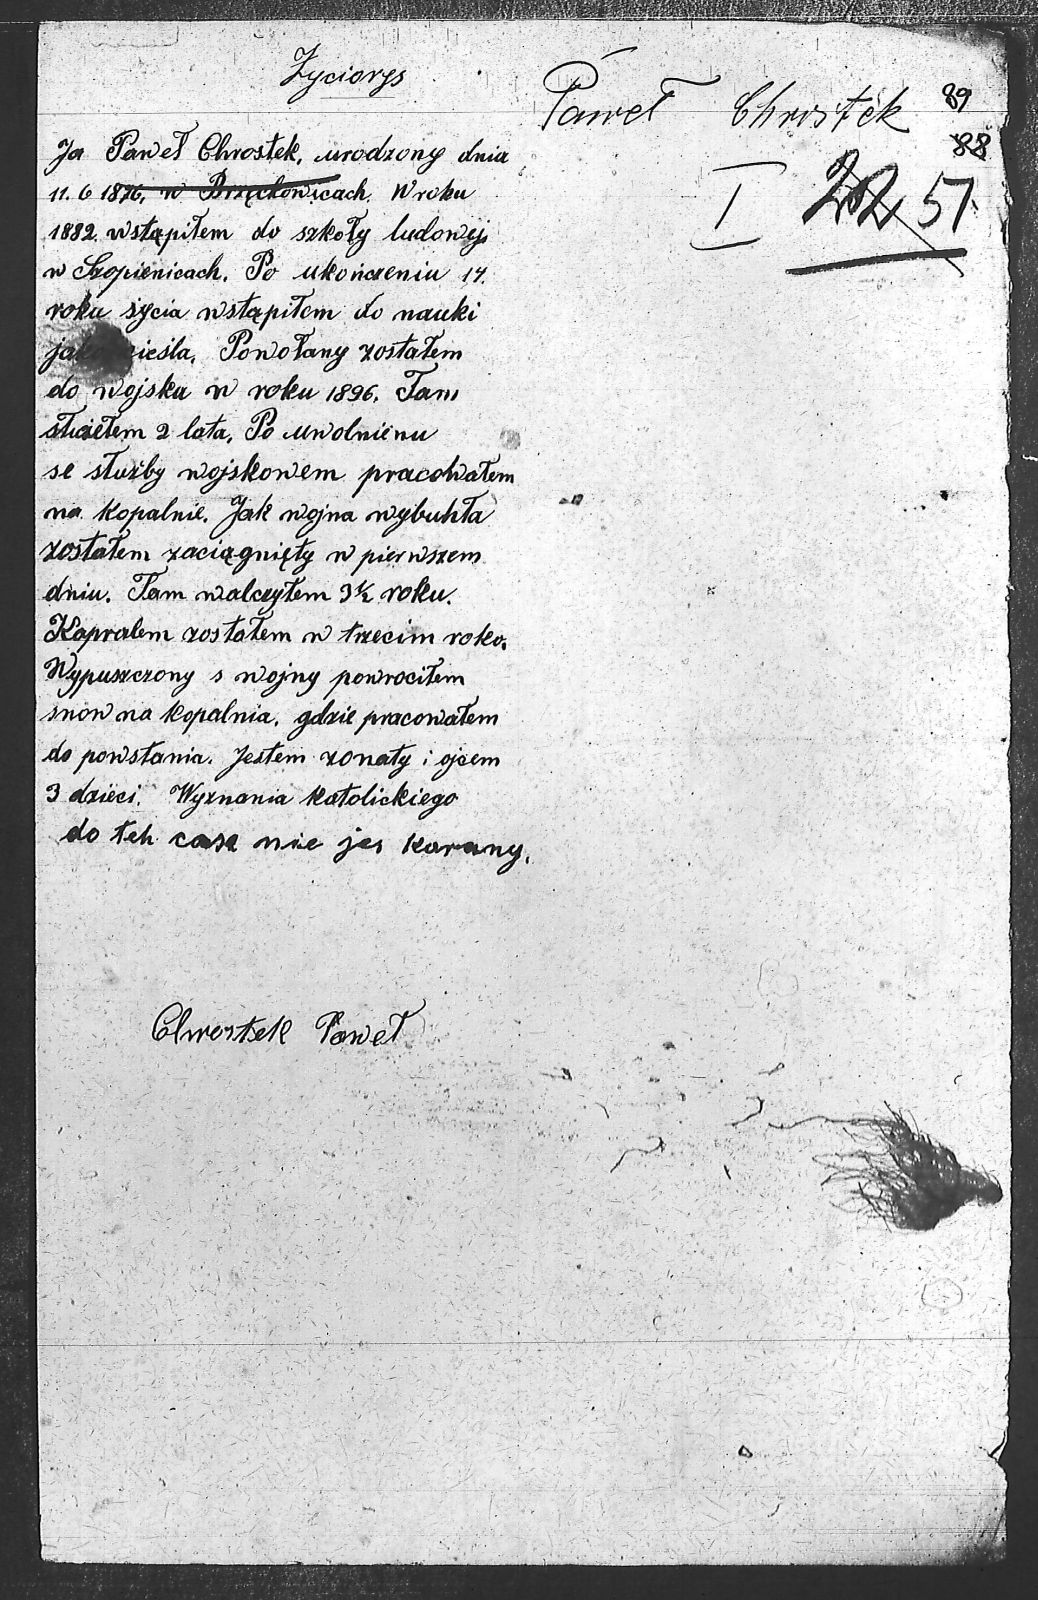 Życiorys
Paweł Chrostek
89
88
I 22 51
Ja Paweł Chrostek, urodzony dnia
11. 6 1876, w Brzęckowicach. W roku
1882. wstąpiłem do szkoły ludowej
w Szopienicach. Po ukończeniu 14.
roku życia wstąpiłem do nauki
Powołany zostałem
do wojska w roku 1896. Tam
2 lata. Po uwolnienu
se służby wojskowem pracowałem
na kopalnie. Jak wojna wybuhła
zostałem zaciągnięty w pierwszem
dniu. Tam walczyłem 3½ roku.
Kapralem zostałem w trzecim roko.
Wypuszczony s wojny powrociłem
snow na kopalnia, gdzie pracowałem
do powstania. Jestem zonaty i ojcem
3 dzieci. Wyznania katolickiego
do teh casa nie jes karany.
Chrostek Paweł